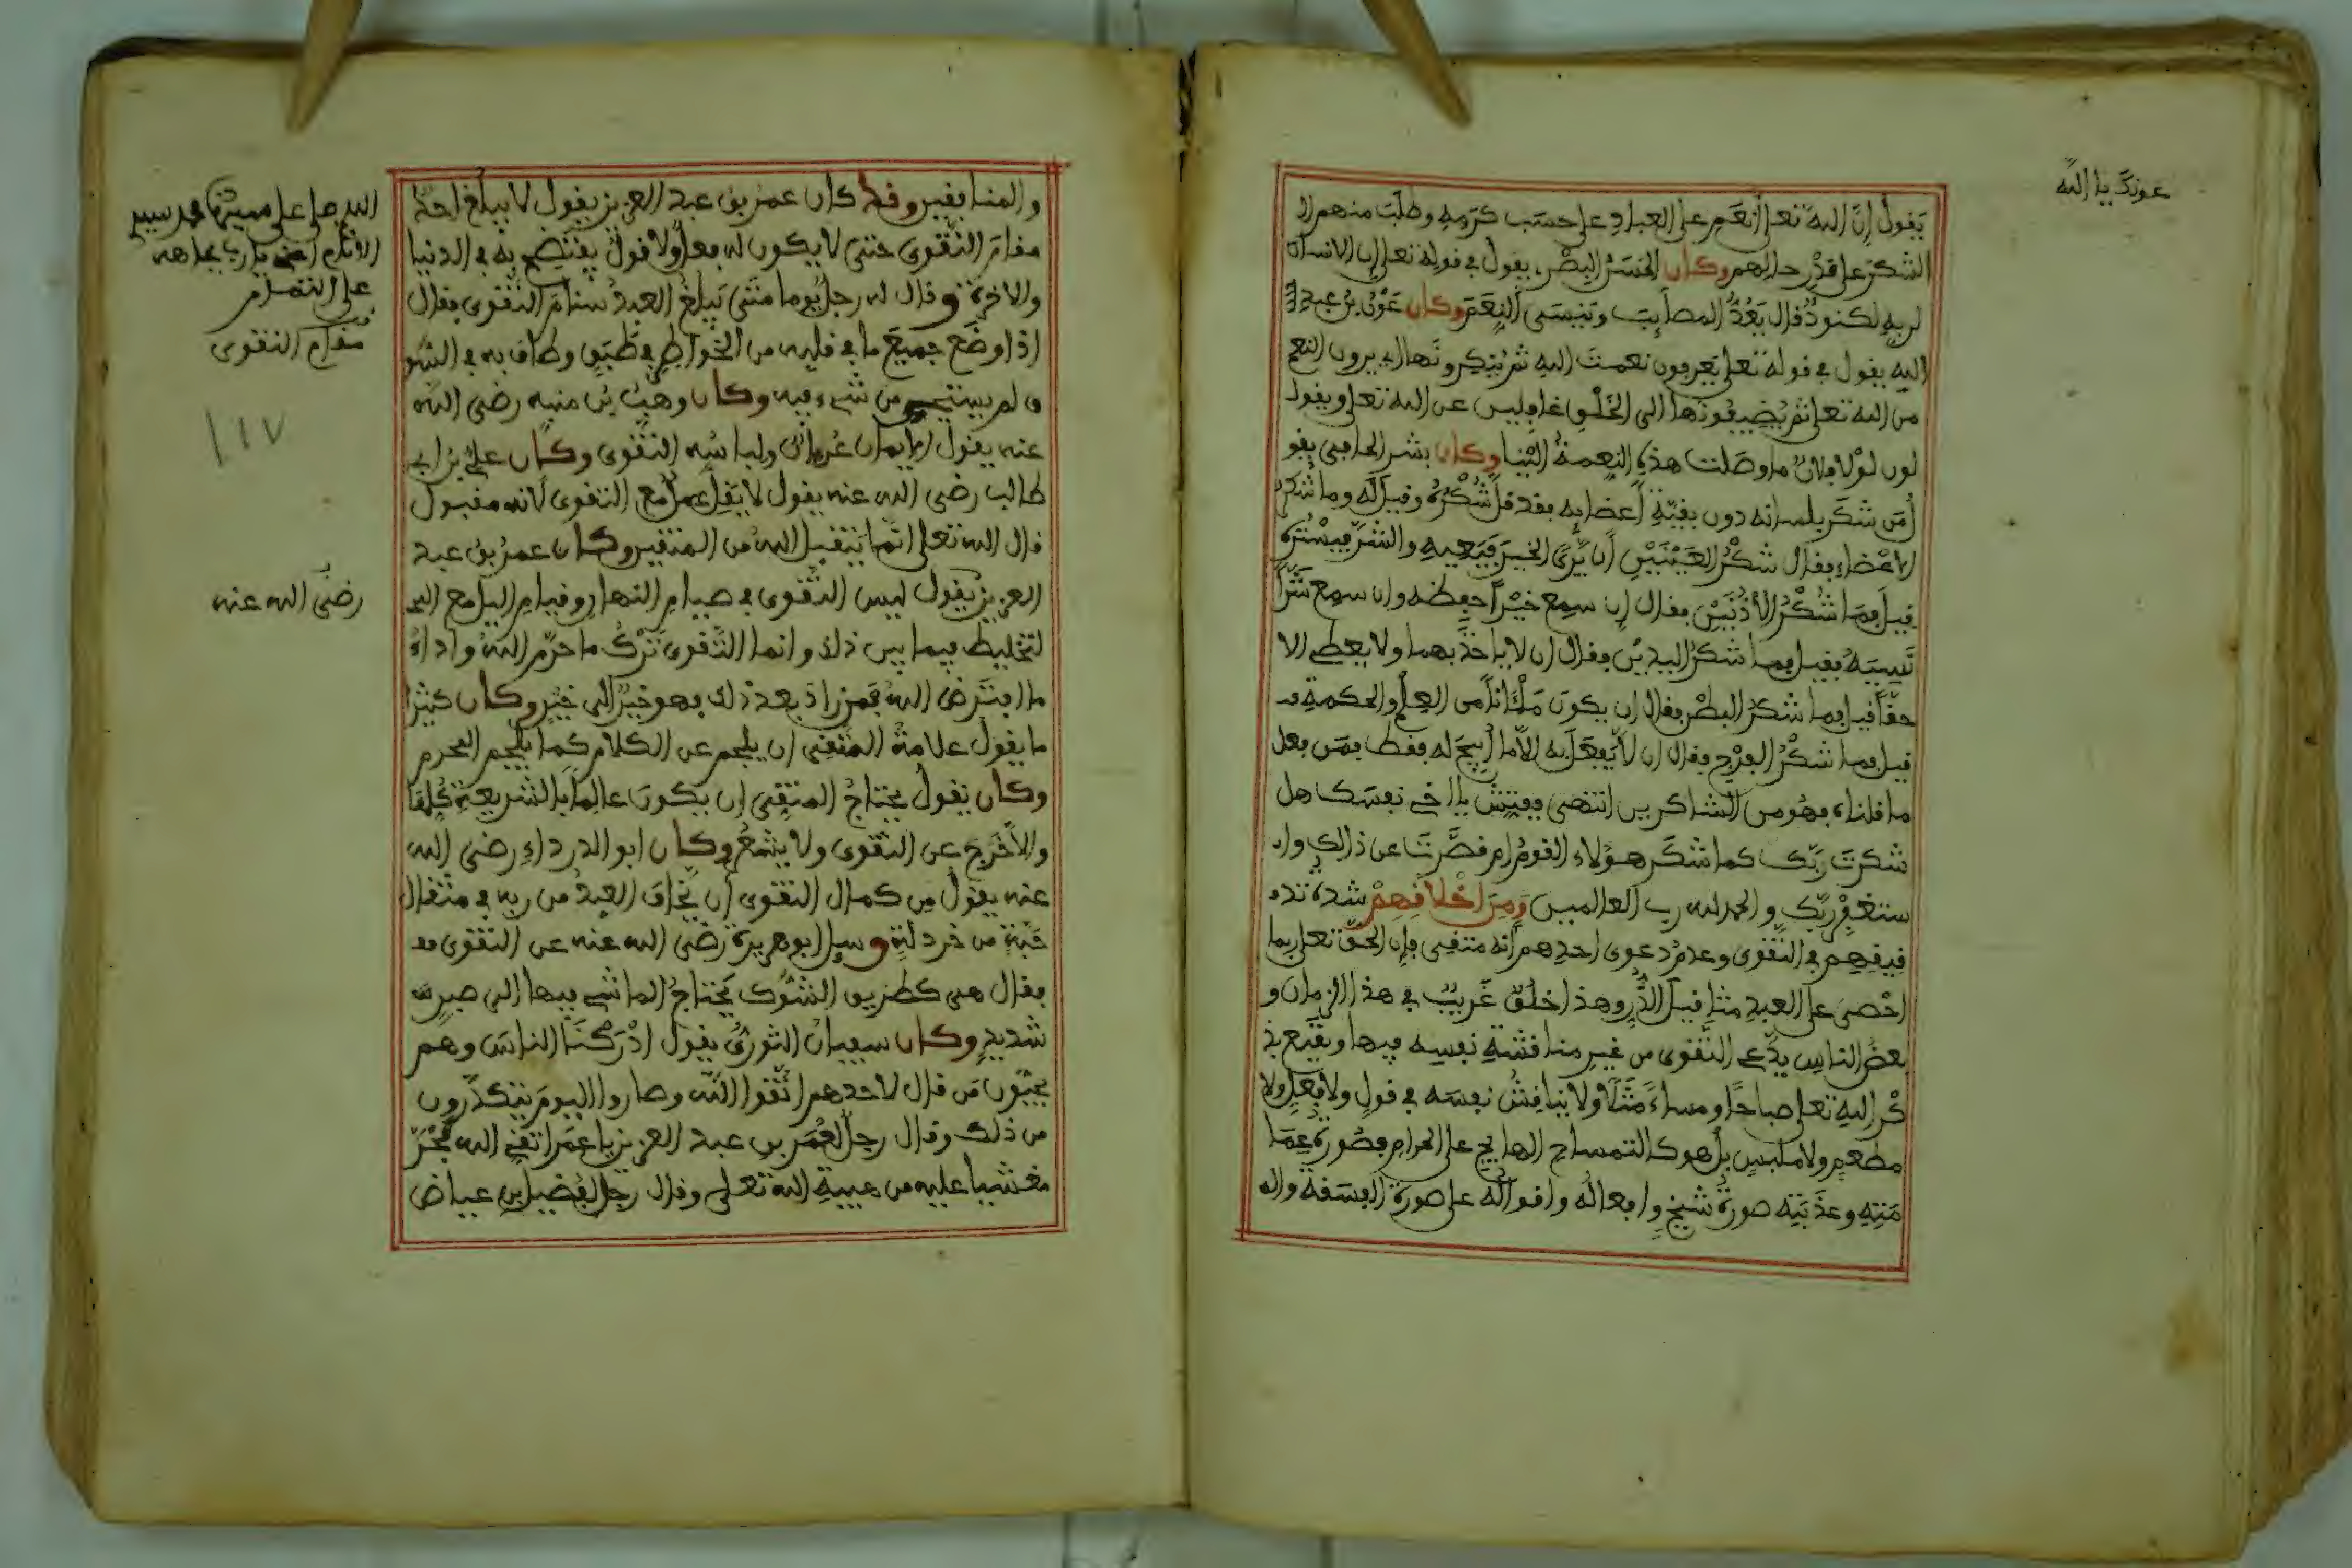 عونك يا الله
يقول إنّ الله تعلى أنعم على العباد على حسب كرمه وطلب منهم ا
لشكر على قدر حالهم وكان الحسن البصر، يقول في قوله تعلى إن الانسان
لربه لكنود قال يعدّ المصايب وينسى النعم وكان عون بن عبد ا
لله يقول في قوله تعلى يعرفون نعمت الله ثم ينكرونها اي يرون النعم
من الله تعلى ثم يضيفونها الى الخلق غافلين عن الله تعلى ويقول
لون لولا فلان ما وصلت هذه النعمة الينا وكان بشر الحافي يقو
ل من شكر بلسانه دون بقيّة أعضايه فقد قل شكره وقيل له وما شكر
الاعضاء فقال شكر العينين أن يرى الخير فيعيه والشرّ فيستره
قيل فما شكر الأذنين فقال إن سمع خيراً حفظه وإن سمع شرّاً
نسيه فقيل فما شكر اليدين فقال ان لا ياخذ بهما ولا يعطي الا
حقّاً قيل فما شكر البطن فقال ان يكون ملآناً من العلم والحكمة
قيل فما شكر الفرج فقال ان لا يفعل به الاّ ما أبيح له فقط فمن فعل
ما قلناه فهو من الشاكرين انتهى ففتش يا اخي نفسك هل
شكرت ربّك كما شكر هؤلاء القوم ام قصّرت عن ذالك وا
ستغفر ربّك والحمد لله رب العالمين ومن اخلاقهم شدة تد
قيقهم في التّقوى وعدم دعوى احدهم أنه متقى فإن الحقّ تعلى ربما
احصى على العبد مثاقيل الذّر وهذا خلق غريب في هذا الزمان و
بعض الناس يدّعي التقوى من غير مناقشة نفسه فيها ويقنع بذ
كر الله تعلى صباحًا ومساءً مثلًا ولا يناقش نفسه في قول ولا فعل ولا
مطعم ولا ملبس بل هو كالتمساح الهايج على الحرام فصورة عما
مته وعذبته صورة شيخ وافعاله واقواله على صورة الفسقة وا
والمنافقين وقد كان عمر بن عبد العزيز يقول لا يبلغ احد
مقام التقوى حتى لا يكون له فعل ولا قول يفتضح به في الدنيا
والاخرة وقال له رجل يوما متى يبلغ العبد سنام التّقوى فقال
اذا وضع جميع ما في قلبه من الخواطر في طبق وطاف به في السّو
ق لم يستحي من شيء فيه وكان وهب بن منبه رضى الله
عنه يقول الايمان عريان ولباسه التقوى وكان عليّ بن ابي
طالب رضى الله عنه يقول لا يقل عمل مع التقوى لانه مقبول
قال الله تعلى انّما يتقبل الله من المتقين وكان عمر بن عبد
العزيز يقول ليس التّقوى في صيام النهار وقيام اليل مع ا
لتخليط فيما بين ذلك وانما التّقوى ترك ما حرّم الله واداء
ما افترض الله فمن زاد بعد ذلك فهو خير الى خير وكان كثيرا
ما يقول علامة المتقى ان يلجم عن الكلام كما يلجم المحرم
وكان يقول يحتاج المتقى ان يكون عالما بالشريعة كلها
والاّ خرج عن التقوى ولا يشعر وكان ابو الدرداء رضى الله
عنه يقول من كمال التقوى أن يخاف العبد من ربه في مثقال
حبّة من خردلة وسيل ابو هريرة رضى الله عنه عن التقوى
فقال هى كطريق الشوك يحتاج الماشي فيها الى صبر
شديد وكان سفيان الثوري يقول ادركنا الناس وهم
يحبّون من قال لاحدهم اتّقوا الله وصاروا اليوم يتكدّرون
من ذلك وقال رجل لعمر بن عبد العزيز يا عمر اتقي الله فخرّ
مغشيا عليه من هيبة الله تعلى وقال رجل لفضيل بن عياض
على التمام
مقام التقوى
١١٧
رضى الله عنه